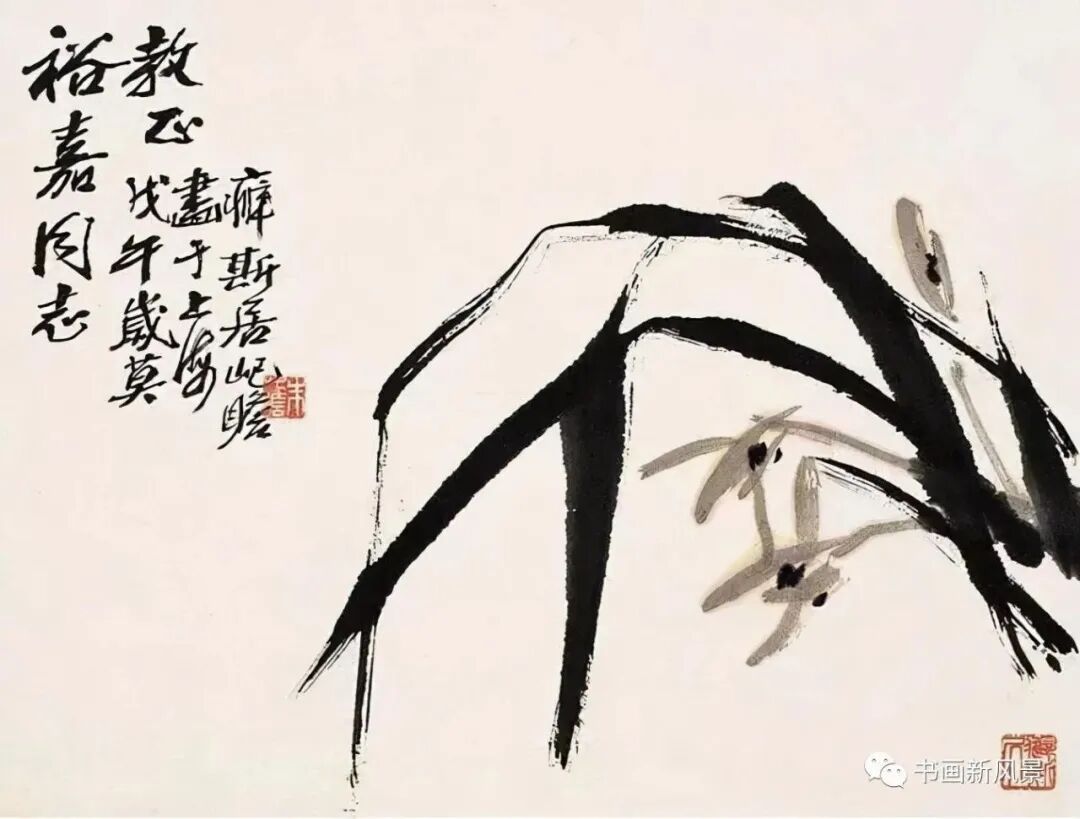 裕嘉同志
教正
戊午歲莫
畫于上海
癖斯居屺瞻
书画新风景